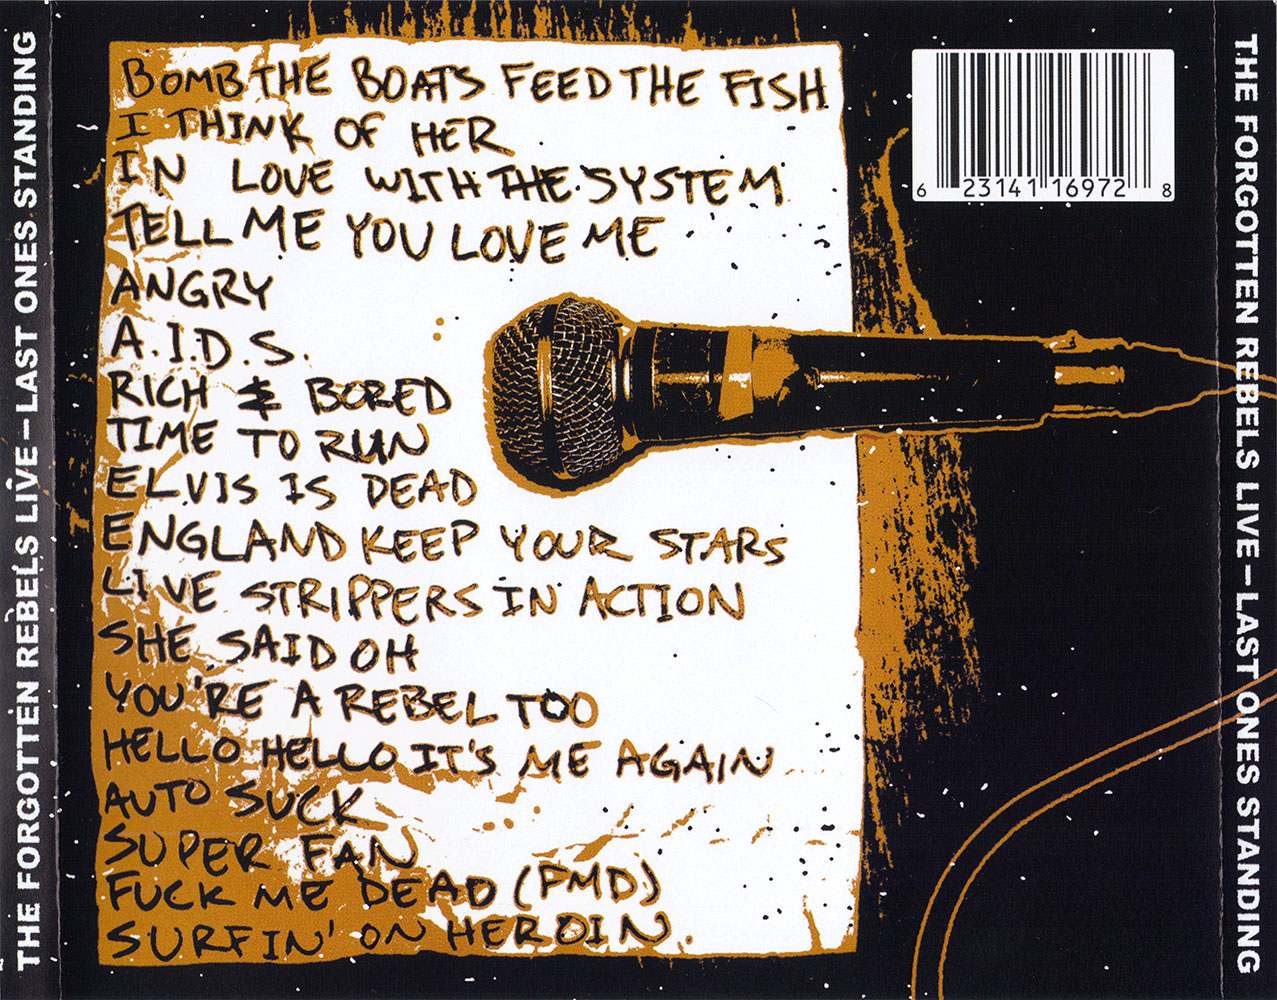 THE FORGOTTEN REBELS LIVE – LAST ONES STANDING
BOMB THE BOATS FEED THE FISH
I THINK OF HER
IN LOVE WITH THE SYSTEM
TELL ME YOU LOVE ME
ANGRY
A.I.D.S.
RICH & BORED
TIME TO RUN
ELVIS IS DEAD
ENGLAND KEEP YOUR STARS
LIVE STRIPPERS IN ACTION
SHE SAID OH
YOU'RE A REBEL TOO
HELLO HELLO IT'S ME AGAIN
AUTO SUCK
SUPER FAN
FUCK ME DEAD (FMD)
SURFIN' ON HEROIN.
6 23141 16972 8
THE FORGOTTEN REBELS LIVE – LAST ONES STANDING